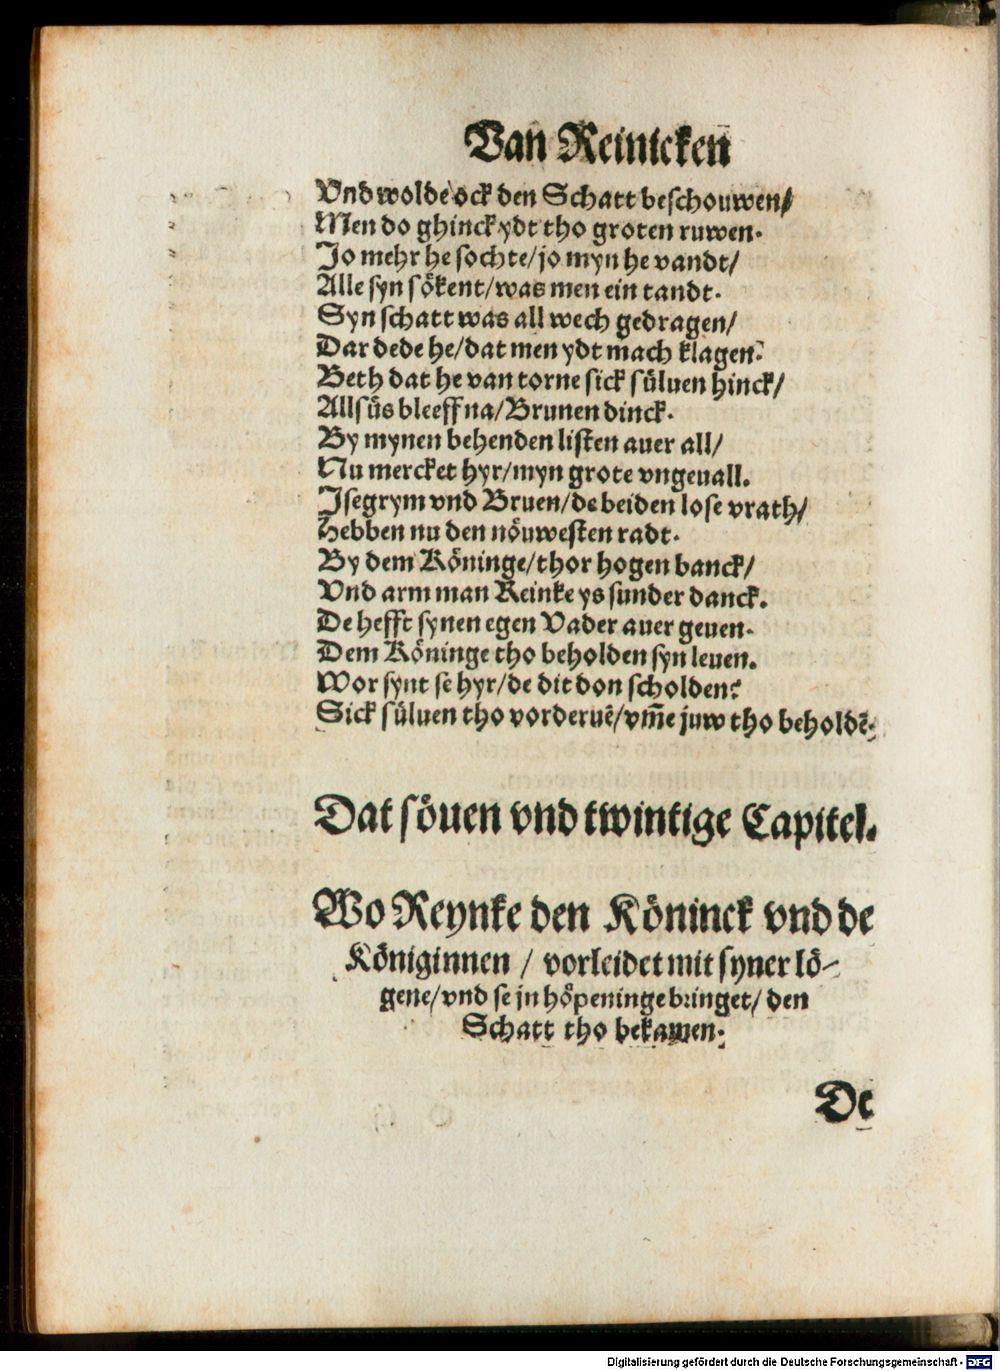 Van Reinicken
Vnd wolde ock den Schatt beschouwen/
Men do ghinck ydt tho groten ruwen.
Jo mehr he sochte/jo myn he vandt/
Alle syn sökent/was men ein tandt.
Syn schatt was all wech gedragen/
Dar dede he/dat men ydt mach klagen.
Beth dat he van torne sick süluen hinck/
Allsüs bleeff na/Brunen dinck.
By mynen behenden listen auer all/
Nu mercket hyr/myn grote vngeuall.
Isegrym vnd Bruen/de beiden lose vrath/
Hebben nu den nöuwesten radt.
By dem Köninge/thor hogen banck/
Vnd arm man Reinke ys sunder danck.
De hefft synen egen Vader auer geuen.
Dem Köninge tho beholden syn leuen.
Wor synt se hyr/de dit don scholden?
Sick süluen tho vorderuē/vm̄e juw tho beholdē.
Dat söuen vnd twintige Capitel.
Wo Reynke den Köninck vnd de
Königinnen / vorleidet mit syner lö-
gene/vnd se jn höpeninge bringet/den
Schatt tho bekamen.
De
Digitalisierung gefördert durch die Deutsche Forschungsgemeinschaft - DFG